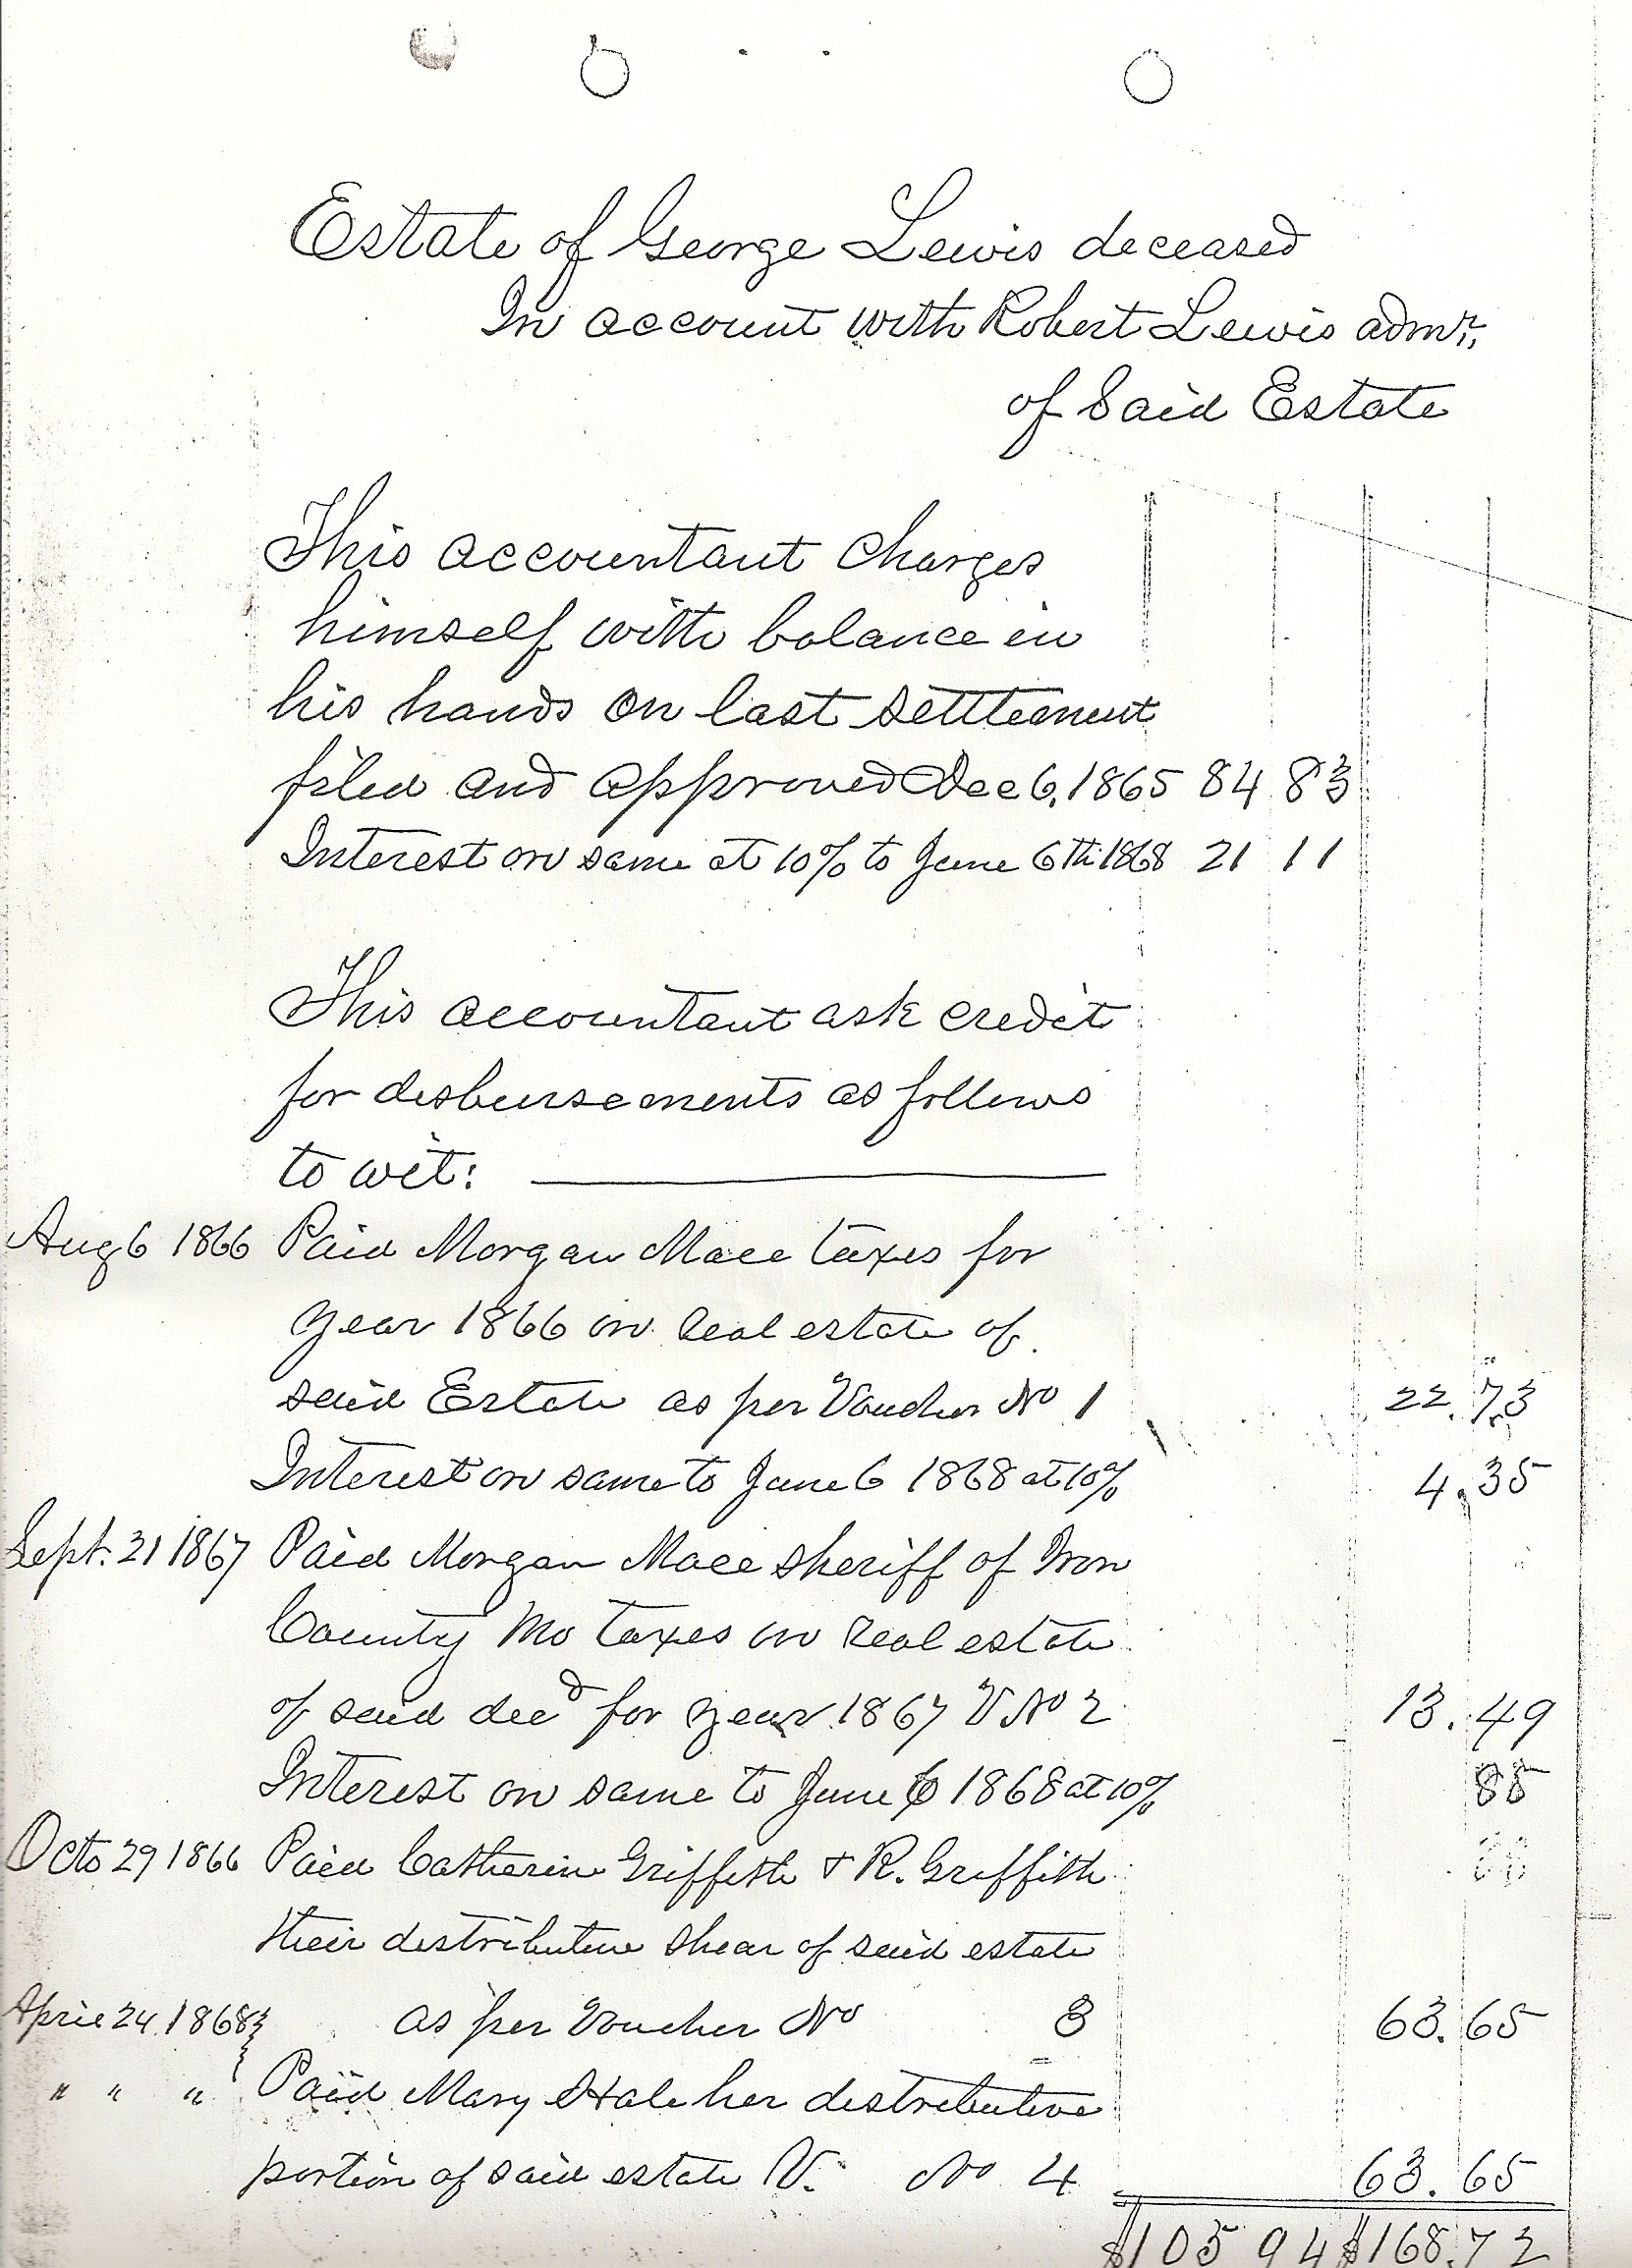 Estate of George Lewis deceased
In account with Robert Lewis admr.
of Said Estate
This accountant Charges
himself with balance in
his hands on last settlement
filed and approved Dec 6, 1865 84 83
Interest on same at 10% to June 6th 1868 21 11
This accountant ask credit
for disbursements as follows
to wit:
Aug 6 1866 Paid Morgan Mace taxes for
year 1866 on real estate of
said Estate as per Voucher No 1 22.73
Interest on same to June 6 1868 at 10% 4.35
Sept. 21 1867 Paid Morgan Mace sheriff of Iron
County Mo taxes on real estate
of said decd for year 1867 V No 2 13.49
Interest on same to June 6 1868 at 10% 85
Octo 29 1866 Paid Catherine Griffith & R. Griffith
their distributive shear of said estate
April 24 1868 as per Voucher No 3 63.65
" " " Paid Mary Hale her distributive
portion of said estate V. No 4 63.65
$105 94 $168.72